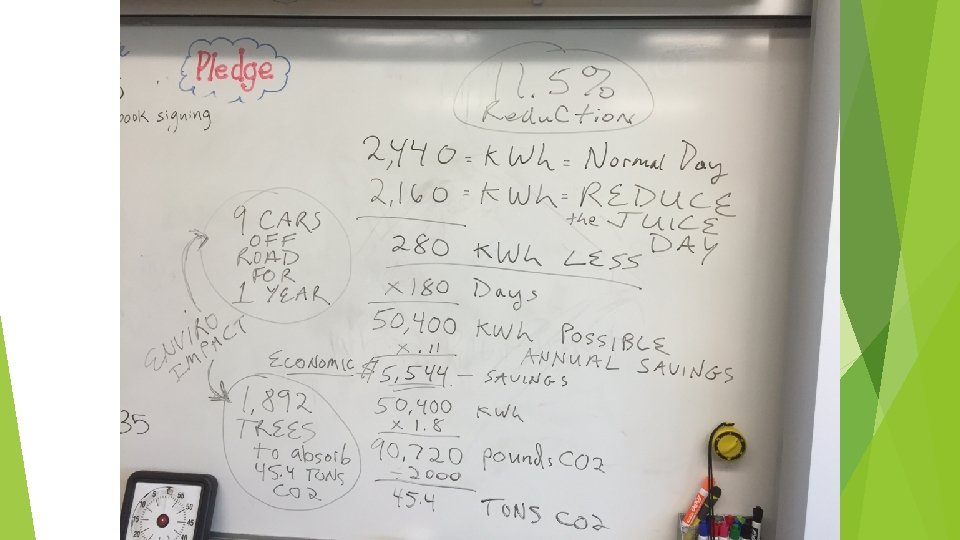 Pledge
book signing
11.5%
Reduction
2,440 = KWh = Normal Day
2,160 = KWh = REDUCE
the JUICE
DAY
280 KWh LESS
x 180 Days
50,400 KWh POSSIBLE
ANNUAL SAVINGS
x .11
ECONOMIC $5,544 — SAVINGS
50,400 KWh
x 1.8
90,720 pounds CO2
÷ 2000
45.4 TONS CO2
9 CARS
OFF
ROAD
FOR
1 YEAR
ENVIRO
IMPACT
1,892
TREES
to absorb
45.4 TONS
CO2
35